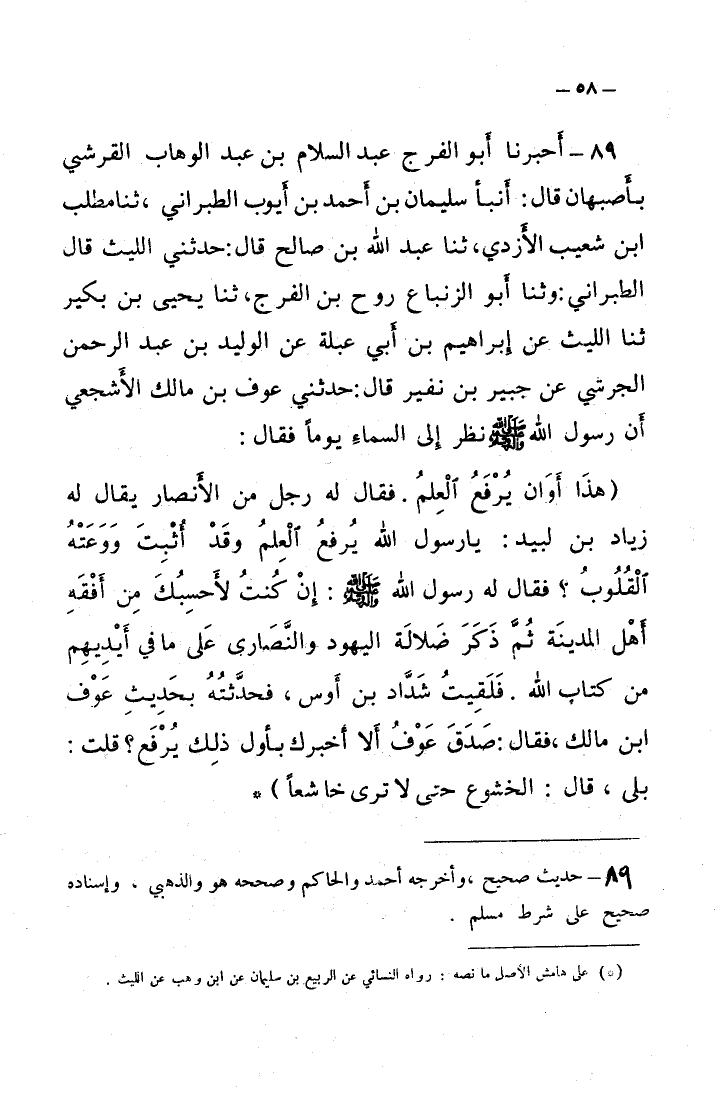 ـ ٥٨ ـ
٨٩ ـ أَحبرنا أَبو الفرج عبد السلام بن عبد الوهاب القرشي
بأَصبهان قال: أَنبأ سليمان بن أَحمد بن أَيوب الطبراني ، ثنا مطلب
ابن شعيب الأَزدي، ثنا عبد الله بن صالح قال: حدثني الليث قال
الطبراني: وثنا أَبو الزنباع روح بن الفرج، ثنا يحيى بن بكير
ثنا الليث عن إبراهيم بن أَبي عبلة عن الوليد بن عبد الرحمن
الجرشي عن جبير بن نفير قال: حدثني عوف بن مالك الأَشجعي
أَن رسول الله ﷺ نظر إلى السماء يوماً فقال :
(هذَا أَوَان يُرْفَعُ ٱلْعِلمُ . فقال له رجل من الأَنصار يقال له
زياد بن لبيد : يارسول الله يُرفعُ ٱلْعِلمُ وقَدْ أُثْبِتَ وَوَعَتْهُ
ٱلْقُلُوبُ ؟ فقال له رسول الله ﷺ : إنْ كُنتُ لأَحسِبُكَ مِن أَفْقَهِ
أَهْل المدينَة ثُمَّ ذَكَرَ ضَلالَة اليهود والنَّصَارى عَلى ما في أَيْدِيهِم
من كتاب الله . فَلَقِيتُ شَدَّاد بن أَوس ، فحدَّثتُهُ بحَدِيثِ عَوْف
ابن مالك ، فقال : صَدَقَ عَوْفُ أَلا أخبرك بأول ذلِك يُرْفَع ؟ قلت :
بلى ، قال : الخشوع حتى لا ترى خاشعاً ) *
٨٩ ـ حديث صحيح ، وأخرجه أحمد والحاكم وصححه هو والذهبي ، وإسناده
صحيح على شرط مسلم .
(*) على هامش الأصل ما نصه : رواه النسائي عن الربيع بن سليمان عن ابن وهب عن الليث .